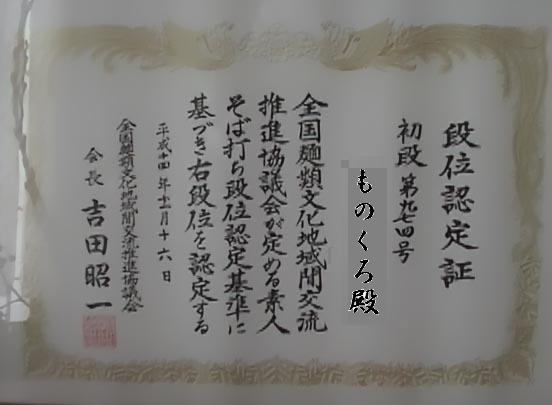 段位認定証
初段 第九七四号
ものくろ殿
全国麺類文化地域間交流
推進協議会が定める素人
そば打ち段位認定基準に
基づき右段位を認定する
平成十四年十一月十六日
全国麺類文化地域間交流推進協議会
会長 吉田昭一